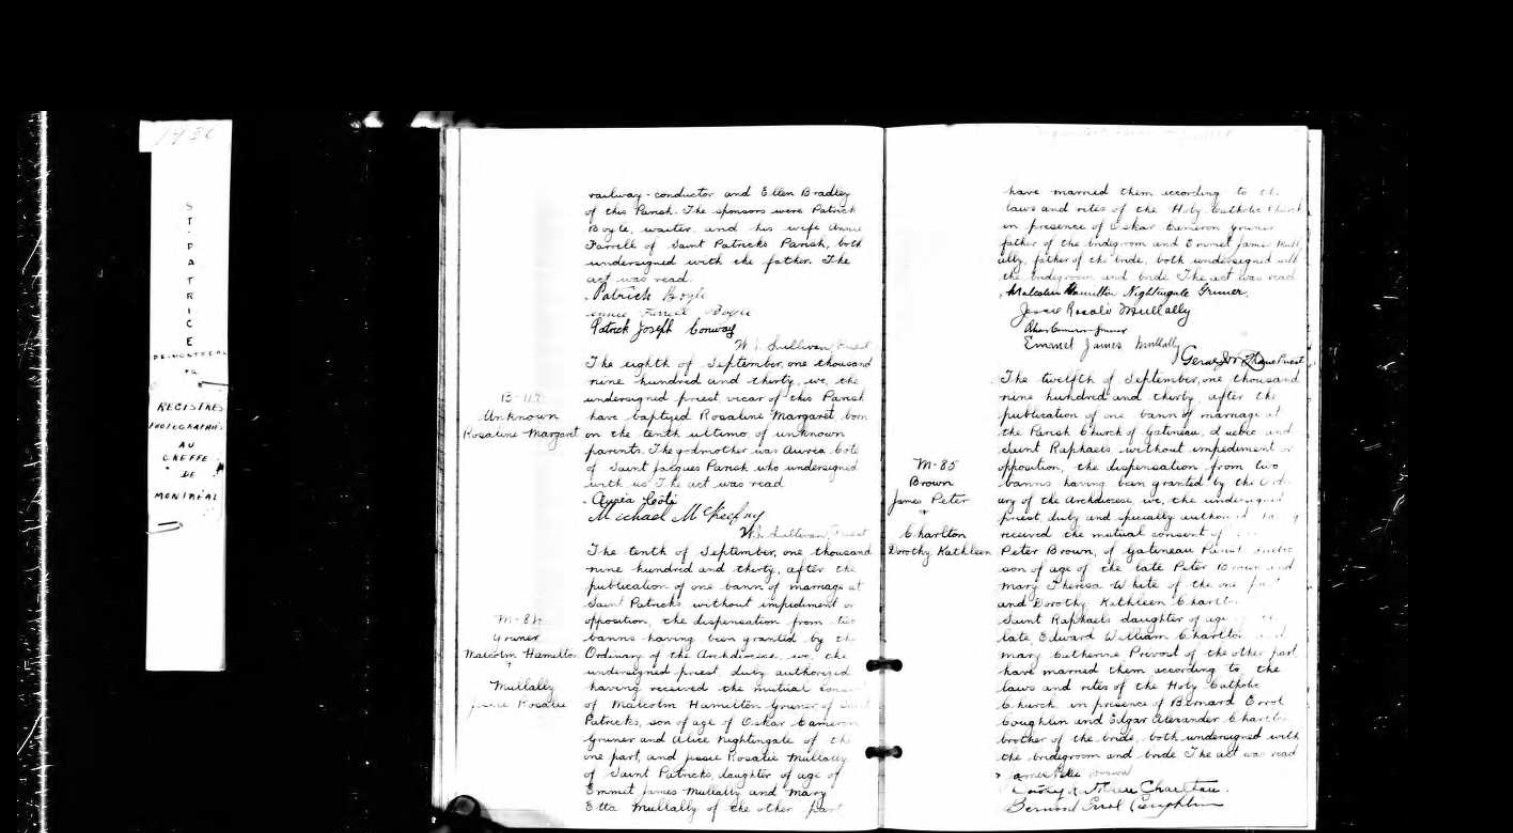 1930
ST PATRICE
DE MONTREAL
REGISTRES
PHOTOGRAPHIÉS
AU
GREFFE
DE
MONTRÉAL
railway-conductor and Ellen Bradley
of this Parish. The sponsors were Patrick
Boyle, waiter, and his wife Annie
Farrell of Saint Patricks Parish, both
undersigned with the father. The
act was read.
Patrick Boyle
Annie Farrell Boyle
Patrick Joseph Conway
Sullivan, Priest
The eighth of September, one thousand
nine hundred and thirty, we, the
undersigned priest, vicar of this Parish
B-117
Unknown
Rosaline Margaret
have baptized Rosaline Margaret born
on the tenth ultimo, of unknown
parents. The godmother was Aurea Coté
of Saint Jacques Parish who undersigned
with us. The act was read
Aurea Côté
Michael McKeefny
Sullivan, Priest
The tenth of September, one thousand
nine hundred and thirty, after the
publication of one bann of marriage at
Saint Patricks without impediment or
M-84
Gruner
Malcolm Hamilton
Mullally
Jessie Rosalie
opposition, the dispensation from two
banns having been granted by the
Ordinary of the Archdiocese, we, the
undersigned priest, duly authorized
having received the mutual consent
of Malcolm Hamilton Gruner, of Saint
Patricks, son of age of Oskar Cameron
Gruner and Alice Nightingale of the
one part, and Jessie Rosalie Mullally
of Saint Patricks, daughter of age of
Emmet James Mullally and Mary
Etta Mullally of the other part
have married them according to the
laws and rites of the Holy Catholic Church
in presence of Oskar Cameron Gruner
father of the bridegroom and Emmet James Mull
ally, father of the bride, both undersigned with
the bridegroom and bride. The act was read
Malcolm Hamilton Nightingale Gruner.
Jessie Rosalie Mullally
Oskar Cameron Gruner
Emmet James Mullally
Gerald Priest
The twelfth of September, one thousand
nine hundred and thirty, after the
publication of one bann of marriage at
the Parish Church of Gatineau, Quebec and
Saint Raphaels, without impediment or
M-85
Brown
James Peter
+
Charlton
Dorothy Kathleen
opposition, the dispensation from two
banns having been granted by the Ordin
ary of the Archdiocese, we, the undersigned
priest, duly and specially authorized
received the mutual consent of
Peter Brown, of Gatineau
son of age of the late Peter Brown and
Mary Theresa White of the one part
and Dorothy Kathleen Charlton
Saint Raphaels daughter of age of the
late, Edward William Charlton and
Mary Catherine Provost of the other part
have married them according to the
laws and rites of the Holy Catholic
Church in presence of Bernard Errol
Coughlin and Edgar Alexander Charlton
brother of the bride, both undersigned with
the bridegroom and bride. The act was read
James Peter Brown
Charlton.
Bernard Errol Coughlin